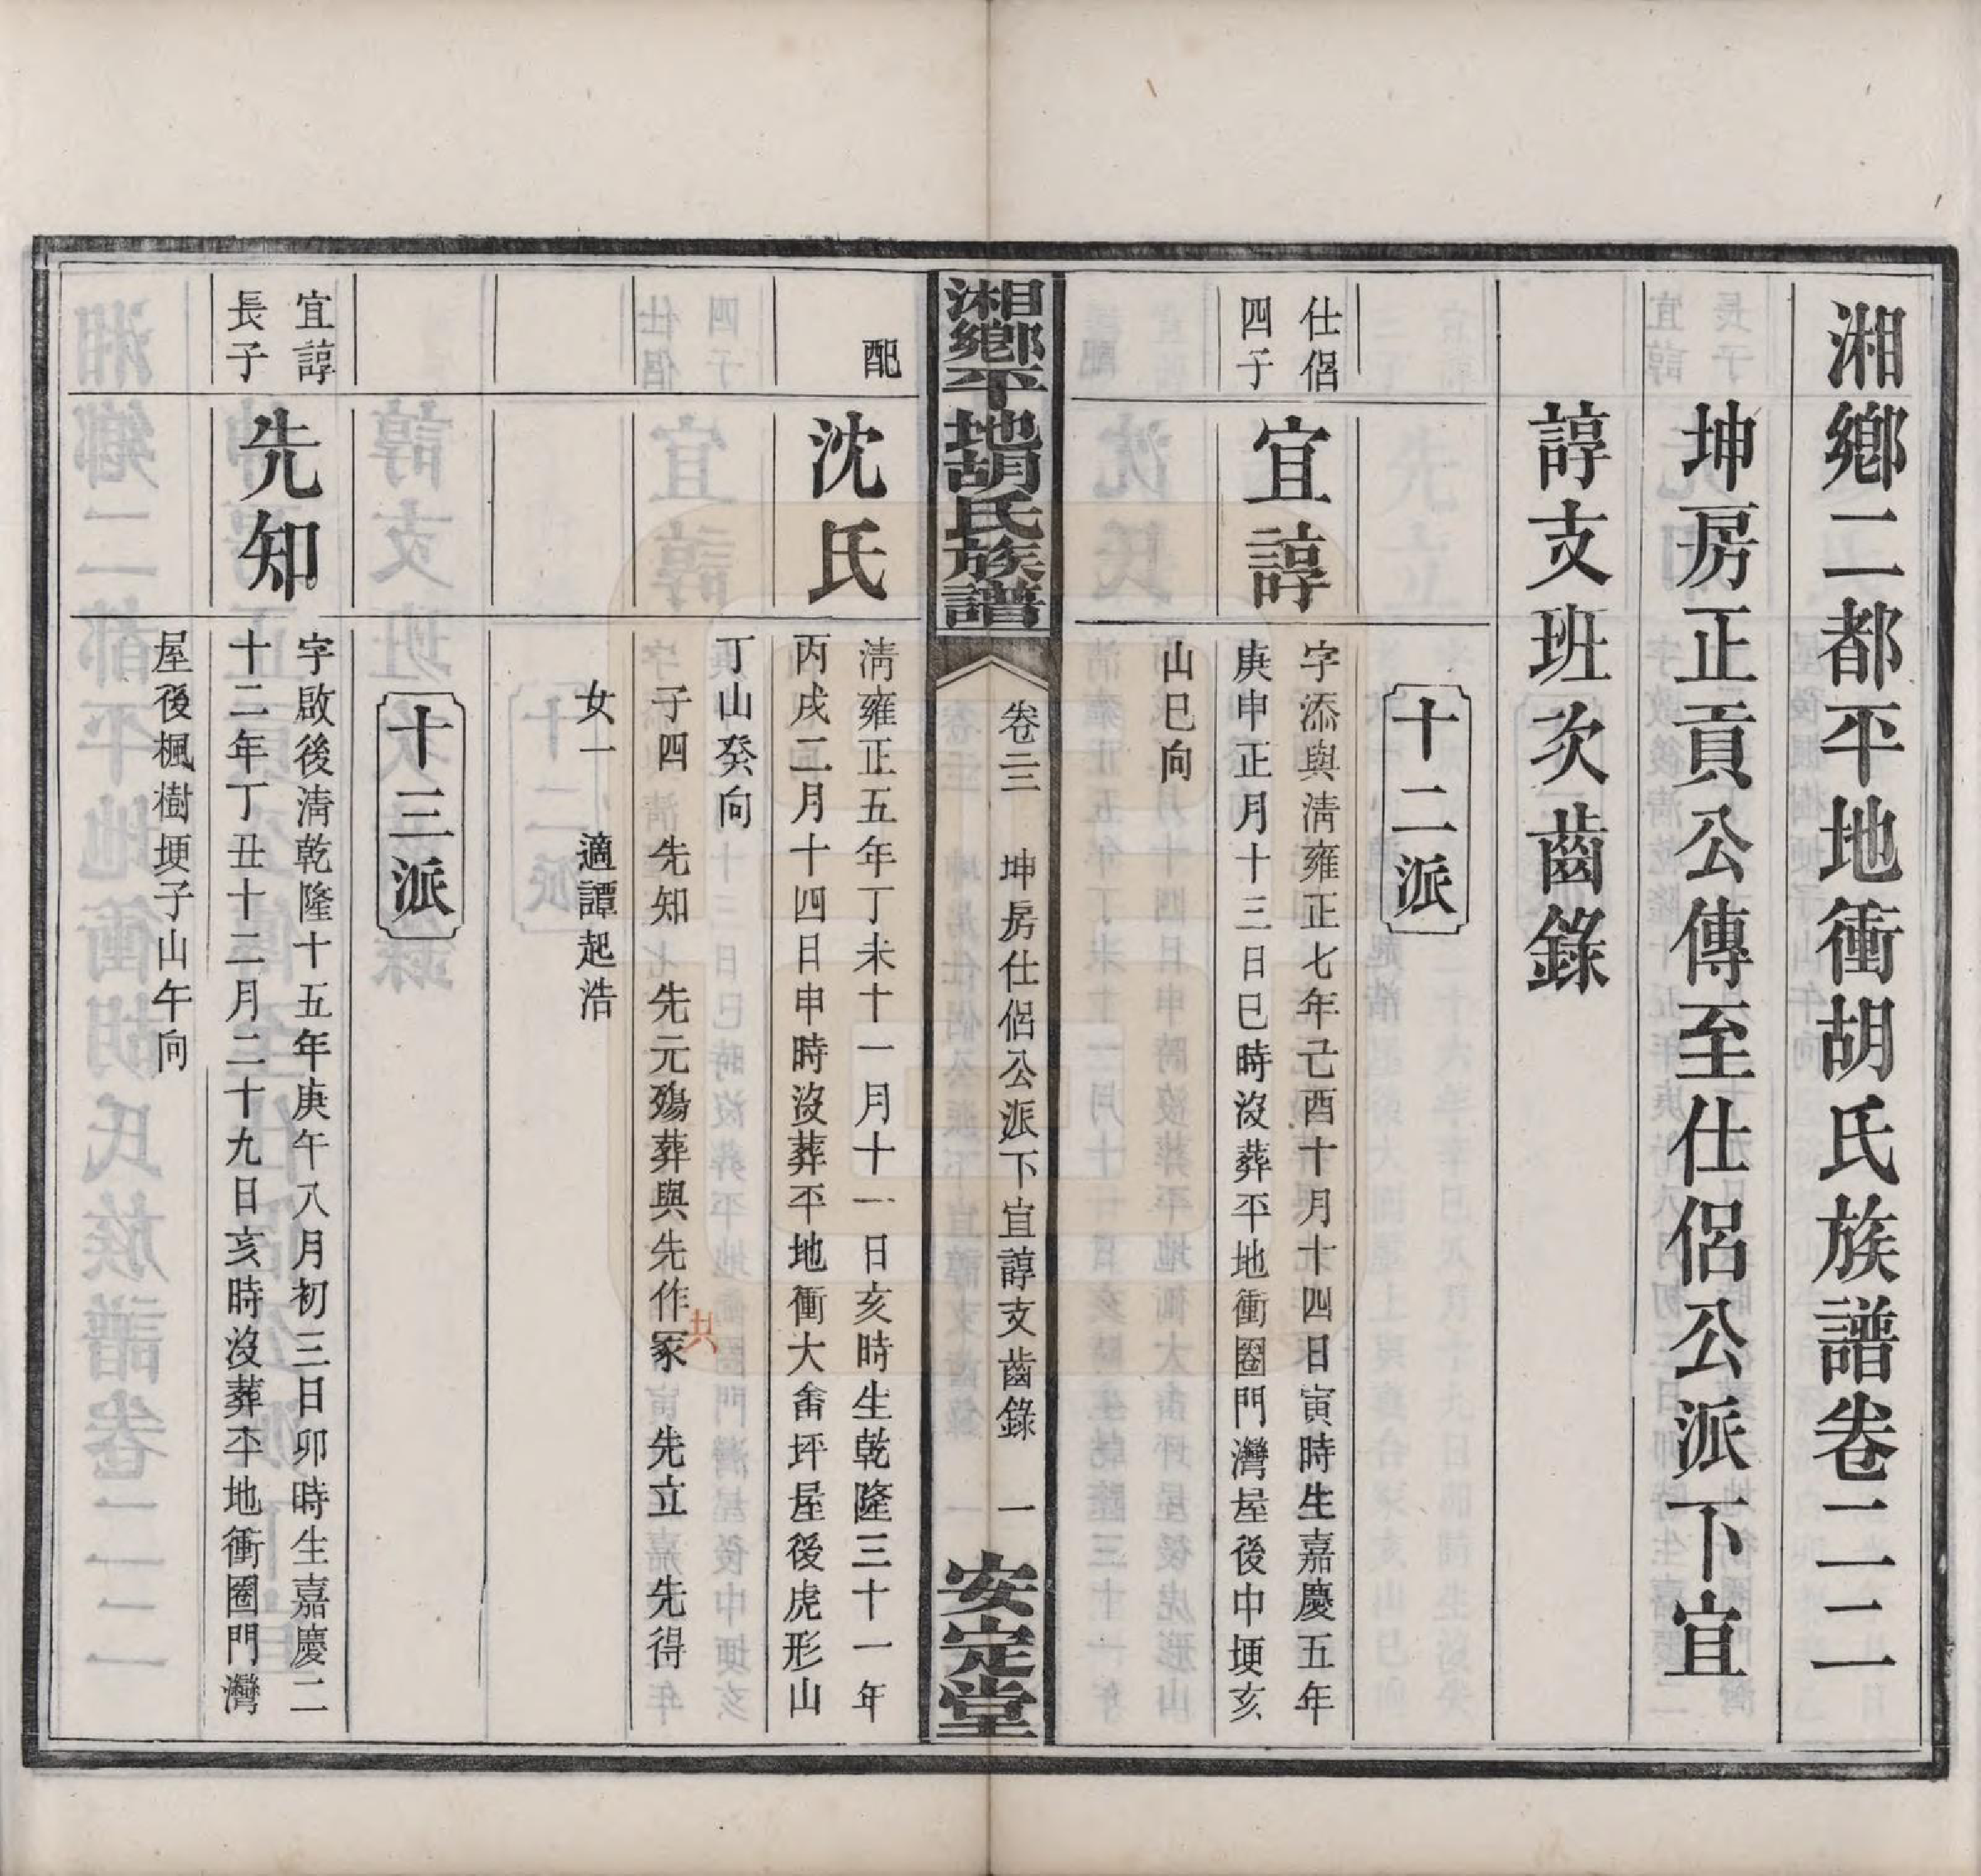 湘鄉二都平地衝胡氏族譜卷二二二
坤房正貢公傳至仕侶公派下宜
諄支班次齒錄
十二派
仕侶
四子
宜諄
字添與清雍正七年己酉十月十四日寅時生嘉慶五年
庚申正月十三日巳時沒葬平地衝圈門灣屋後中埂亥
山巳向
湘鄉平地胡氏族譜
卷二二二 坤房仕侶公派下宜諄支齒錄 一
安定堂
配
沈氏
清雍正五年丁未十一月十一日亥時生乾隆三十一年
丙戌二月十四日申時沒葬平地衝大畬坪屋後虎形山
丁山癸向
子四 先知 先元殤葬與先作冢共 先立 先得
女一 適譚起浩
十三派
宜諄
長子
先知
字啟後清乾隆十五年庚午八月初三日卯時生嘉慶二
十二年丁丑十二月二十九日亥時沒葬平地衝圈門灣
屋後楓樹埂子山午向